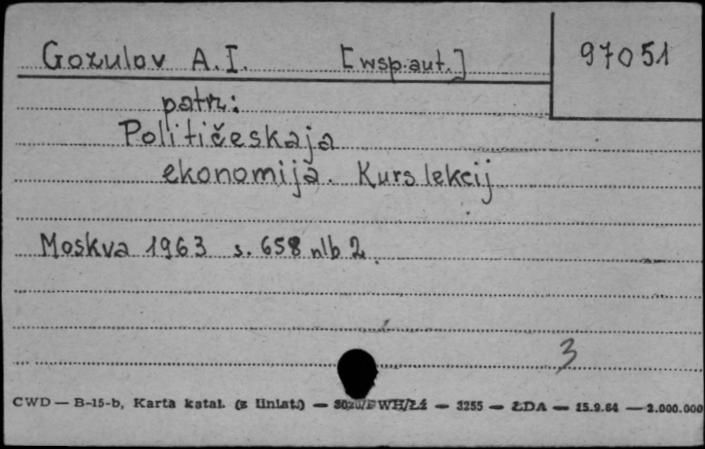 Gozulov A.I. [wsp.aut.] 97051
patrz:
Političeskaja
ekonomija. Kurs lekcij
Moskva 1963 s. 658 nlb 2.
3
CWD — B-15-b, Karta katal. (z liniat.) — — 3255 — ŁDA — 15.9.64 — 2.000.000